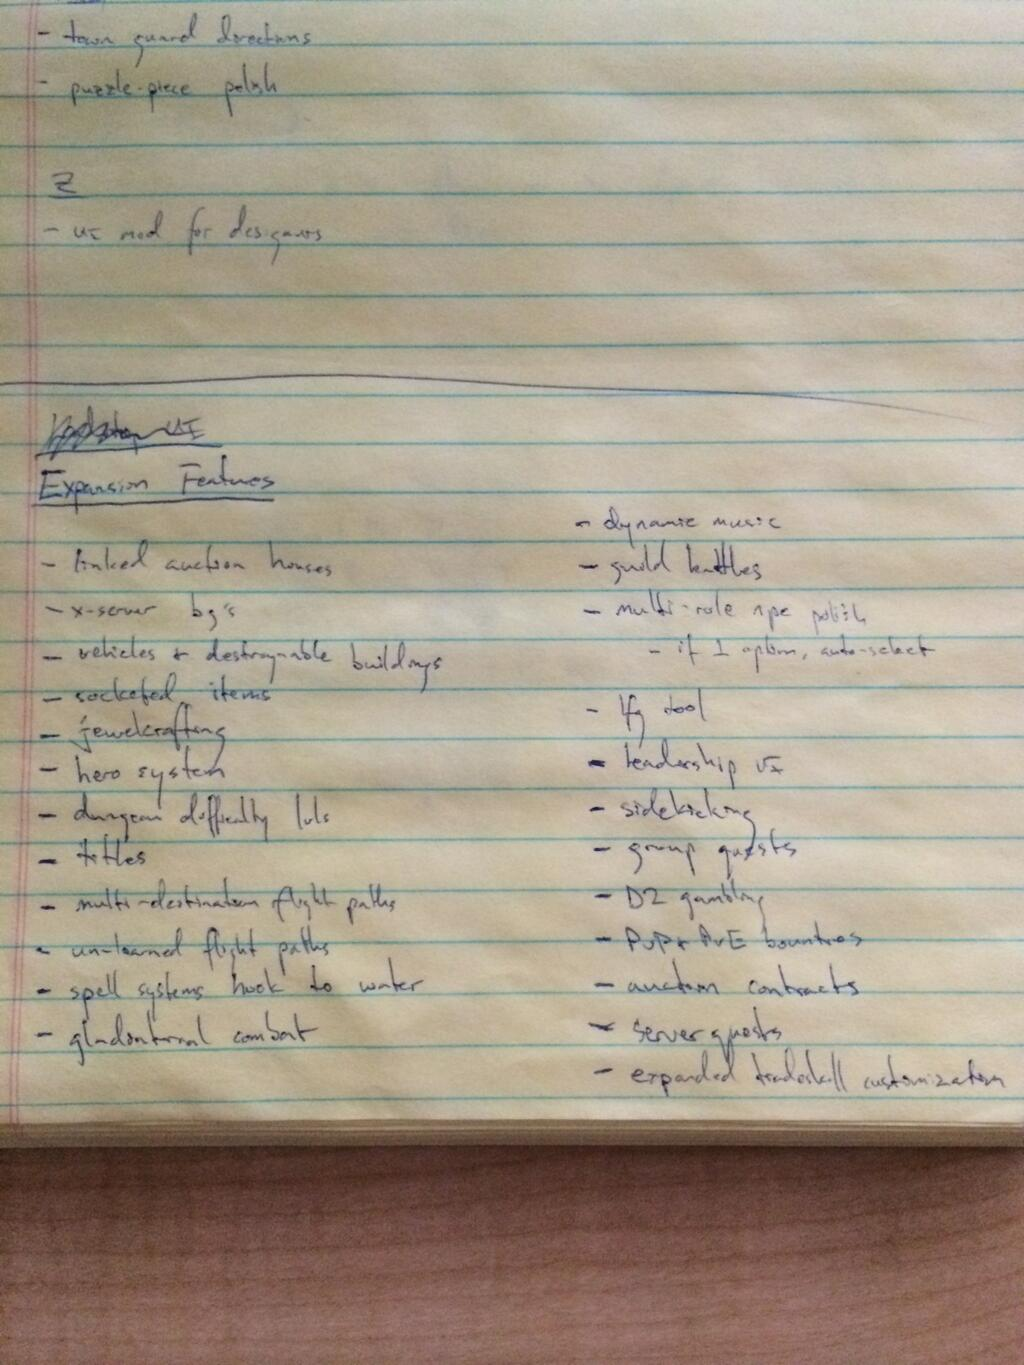 - town guard directions
- puzzle-piece polish
Z
- UI mod for designers
UI
Expansion Features
- linked auction houses
- x-server bg's
- vehicles & destroy-able buildings
- socketed items
- jewelcrafting
- hero system
- dungeon difficulty lvls
- titles
- multi-destination flight paths
- un-learned flight paths
- spell systems hook to water
- gladiatorial combat
- dynamic music
- guild battles
- multi-role npc polish
- if 1 option, auto-select
- lfg tool
- leadership UI
- sidekicking
- group quests
- D2 gambling
- PvP & PvE bounties
- auction contracts
- server quests
- expanded tradeskill customization